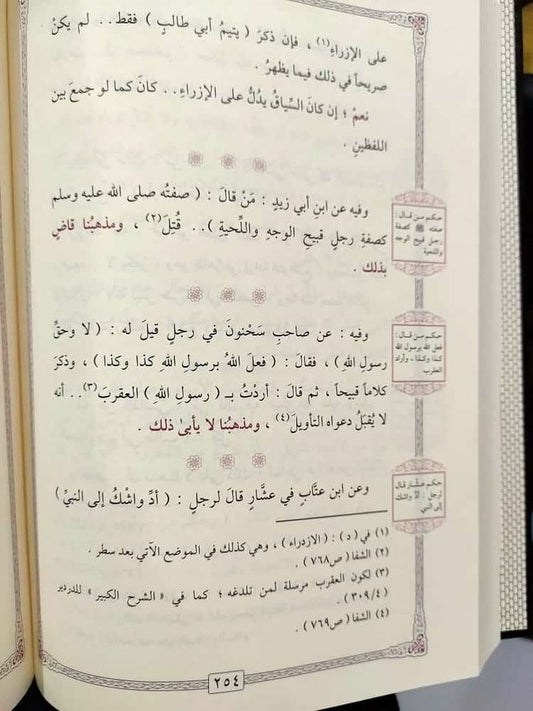 على الإزراءِ(١) ، فإن ذكرَ ( يتيمُ أبي طالبٍ ) فقط.. لم يكنْ
صريحاً في ذلك فيما يظهرُ .
نعمْ ؛ إن كانَ السِّياقُ يدُلُّ على الإزراءِ.. كانَ كما لو جمعَ بين
اللفظينِ .
وفيه عن ابنِ أبي زيدٍ : مَنْ قالَ : ( صفتُه صلى الله عليه وسلم
كصفةِ رجلٍ قبيحِ الوجهِ واللِّحيةِ ).. قُتلَ(٢) ، ومذهبُنا قاضٍ
بذلك .
حكم من قال :
صفته ﷺ كصفة
رجل قبيح الوجه
واللحية
وفيه : عن صاحبِ سَحْنونَ في رجلٍ قيلَ له : ( لا وحقِّ
رسولِ اللهِ ) ، فقالَ : ( فعلَ اللهُ برسولِ اللهِ كذا وكذا ) ، وذكرَ
كلاماً قبيحاً ، ثم قالَ : أردْتُ بـ ( رسولِ اللهِ ) العقربَ(٣).. أنه
لا يُقبَلُ دعواه التأويلَ(٤) ، ومذهبُنا لا يأبىٰ ذلك .
حكم من قال :
فعل الله برسول الله
كذا وكذا ـ وأراد
العقرب
وعن ابن عتَّابٍ في عشَّارٍ قالَ لرجلٍ : ( أدِّ واشْكُ إلى النبيِّ )
حكم عشَّار قال
لرجل : أدِّ واشك
إلى النبي
(١) في ( د ) : ( الازدراء ) ، وهي كذلك في الموضع الآتي بعد سطر .
(٢) الشفا ( ص٧٦٨ ) .
(٣) لكون العقرب مرسلة لمن تلدغه ؛ كما في « الشرح الكبير » للدردير
( ٣٠٩/٤ ) .
(٤) الشفا ( ص٧٦٩ ) .
٢٥٤